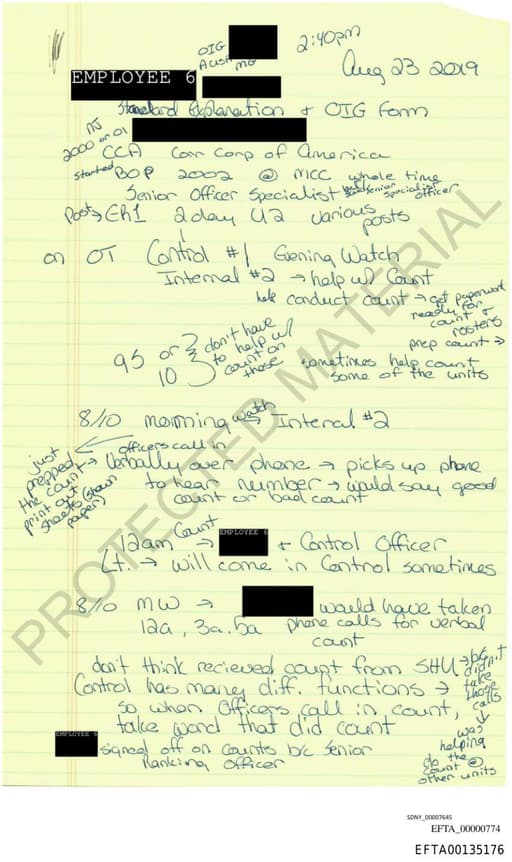 OIG 2:40pm
MG
EMPLOYEE 6
Aug 23 2019
Standard Explanation + OIG Form
NJ
2000 or 01
CCA Corr Corp of America
started BOP 2002 @ MCC whole time
Senior Officer Specialist senior specialist officer
Post → Ch1 2 day U2 various posts
on OT Control #1 Evening Watch
Internal #2 → help w/ Count
help conduct count → get paperwork ready for count + rosters
prep count →
9S or 10 } don't have to help w/ count on those
sometimes help count some of the units
8/10 morning watch → Internal #2
just prepped the count → print out sheets
officers call in
Verbally over phone → picks up phone
to hear number → would say good
count or bad count
12am Count → EMPLOYEE 6 + Control Officer
Lt. → will come in Control sometimes
8/10 MW → would have taken
12a, 3a, 5a phone calls for verbal
count
don't think recieved count from SHU → b/c didn't take those calls
Control has many diff. functions →
so when Officers call in count,
take word that did count
was helping do the count @ other units
EMPLOYEE 6 signed off on counts b/c Senior
Ranking Officer
PROTECTED MATERIAL
SDNY_00007645
EFTA_00000774
EFTA00135176